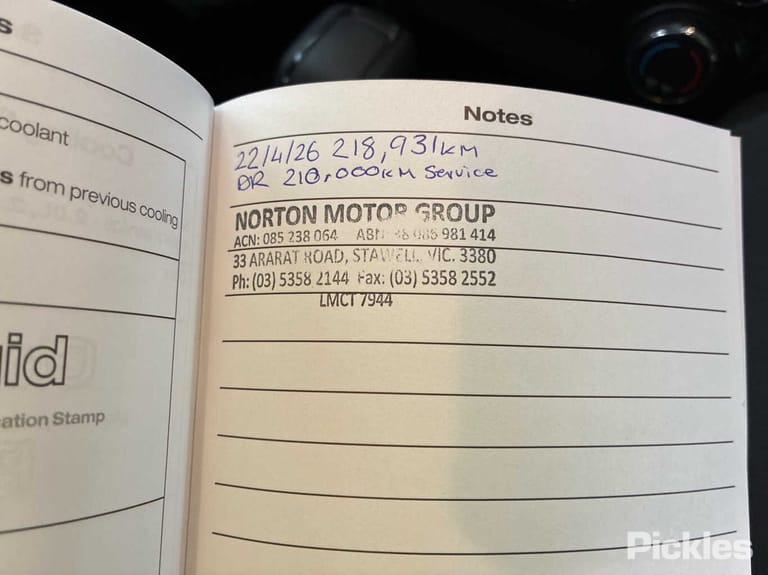 s
coolant
s from previous cooling
id
ation Stamp
Notes
22/4/26 218,931KM
210,000KM Service
NORTON MOTOR GROUP
ACN: 085 238 064 ABN: 981 414
33 ARARAT ROAD, STAWELL, VIC. 3380
Ph: (03) 5358 2144 Fax: (03) 5358 2552
LMCT 7944
Pickles